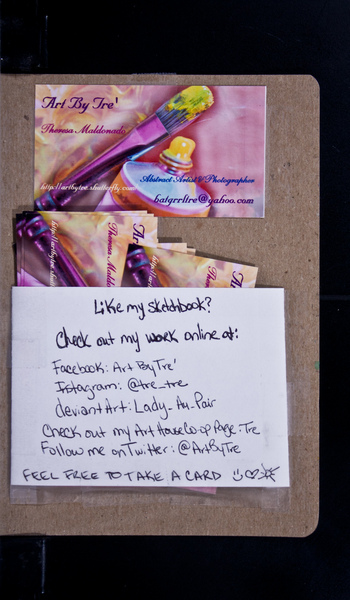 Art By Tre'
Theresa Maldonado
Abstract Artist & Photographer
http://artbytre.shutterfly.com
batgrrltre@yahoo.com
Theresa Maldonado
http://artbytre.shutterfly.com
Like my sketchbook?
Check out my work online at:
Facebook: Art By Tre'
Instagram: @tre_tre
deviantArt: Lady-Au-Pair
Check out my Art House Co-op Page: Tre
Follow me on Twitter: @ArtByTre
FEEL FREE TO TAKE A CARD